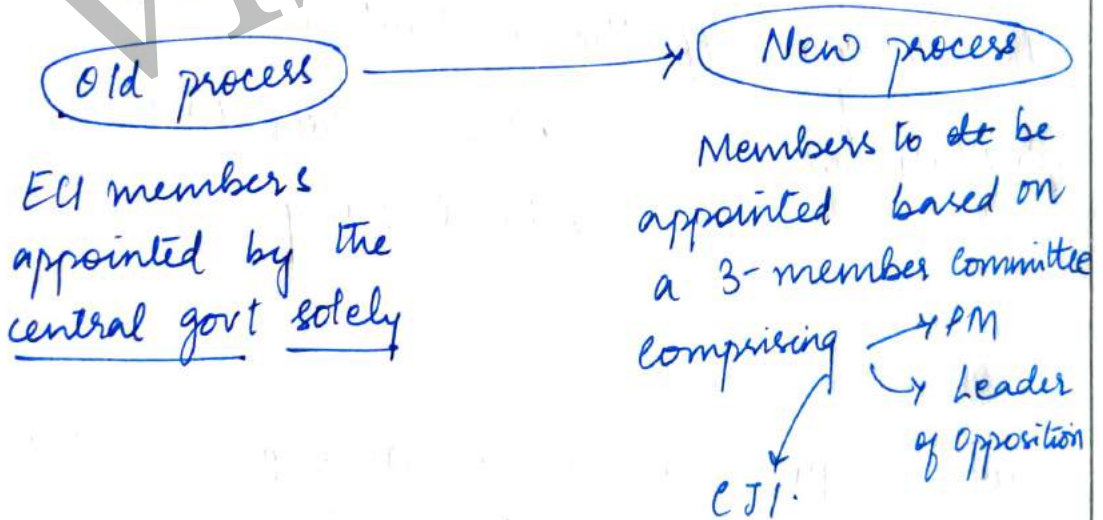 Old process
ECI members
appointed by the
central govt solely
New process
Members to be
appointed based on
a 3-member committee
comprising
PM
Leader
of Opposition
CJI.